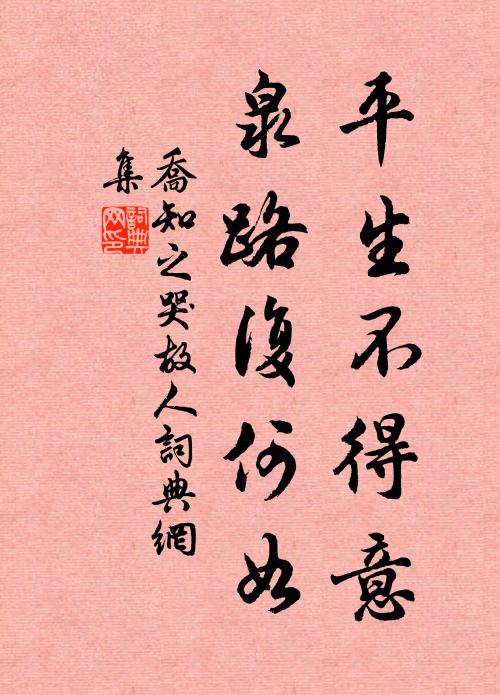 平生不得意
泉路復何如
喬知之哭故人詞典網
集
詞典
网印